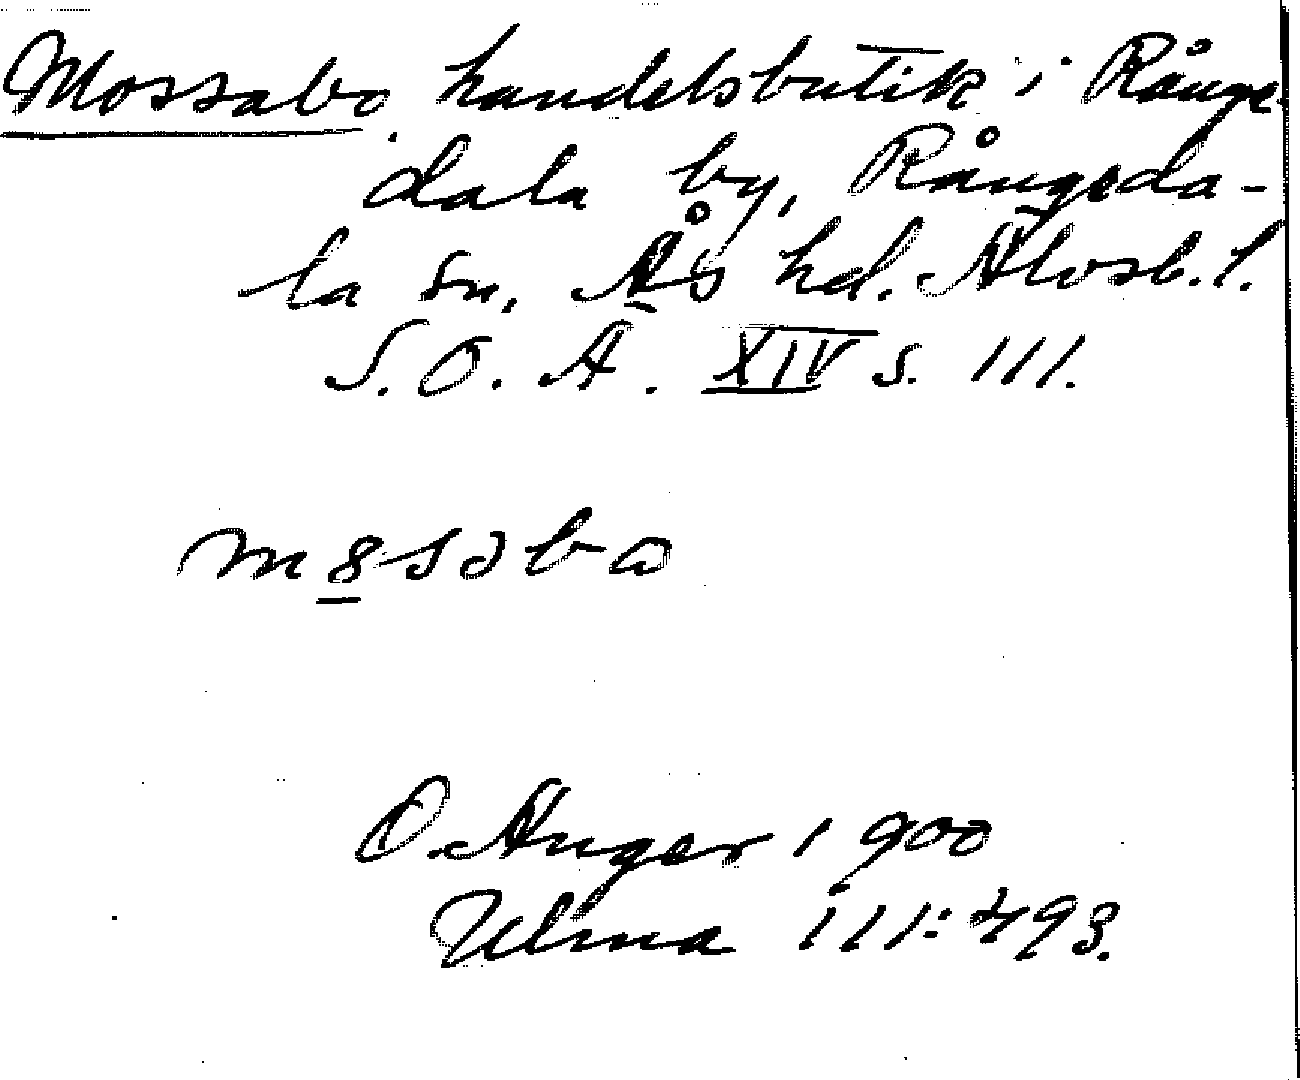 Mossabo handelsbutik i Rånge-
dala by, Rångeda-
la sn. Ås hd. Älvsb. l.
S. O. Ä. XIV s. 111.
m8səbo
O. Ånger 1900
Ulma 111:493.